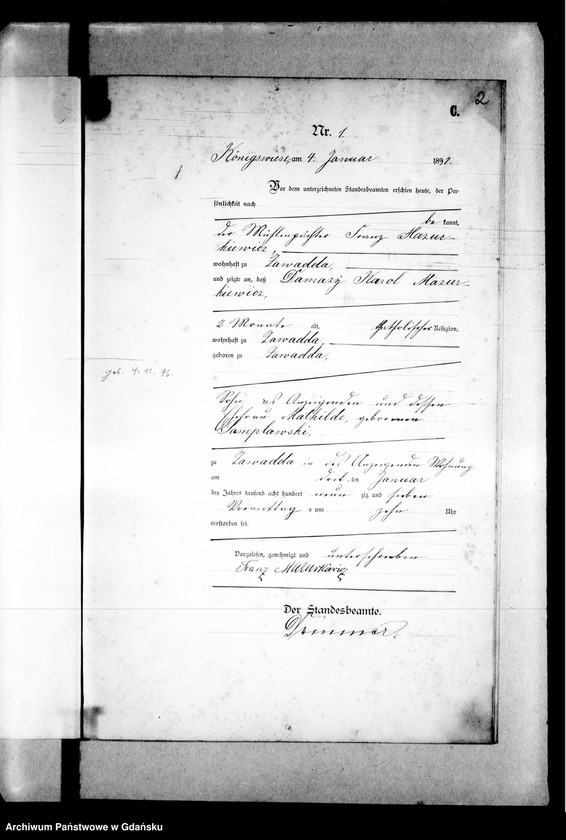 2
C.
Nr. 1.
Königswiese, am 4. Januar 189
Vor dem unterzeichneten Standesbeamten erschien heute, der Per-
sönlichkeit nach
be kannt,
der Mühlenpächter Franz Mazur-
kiewicz,
wohnhaft zu Zawadda,
und zeigte an, daß Damazy Karol Mazur-
kiewicz,
2 Monate alt, katholischer Religion,
wohnhaft zu Zawadda,
geboren zu Zawadda,
geb. 4. 11. 96.
Sohn des Anzeigenden und dessen
Ehefrau Mathilde, geborenen
Samplawski,
zu Zawadda in des Anzeigenden Wohnung
am ten Januar
des Jahres tausend acht hundert neun zig und sieben
Vormittag s um zehn Uhr
verstorben sei.
Vorgelesen, genehmigt und unterschrieben
Franz Mazurkiewicz
Der Standesbeamte.
Archiwum Państwowe w Gdańsku